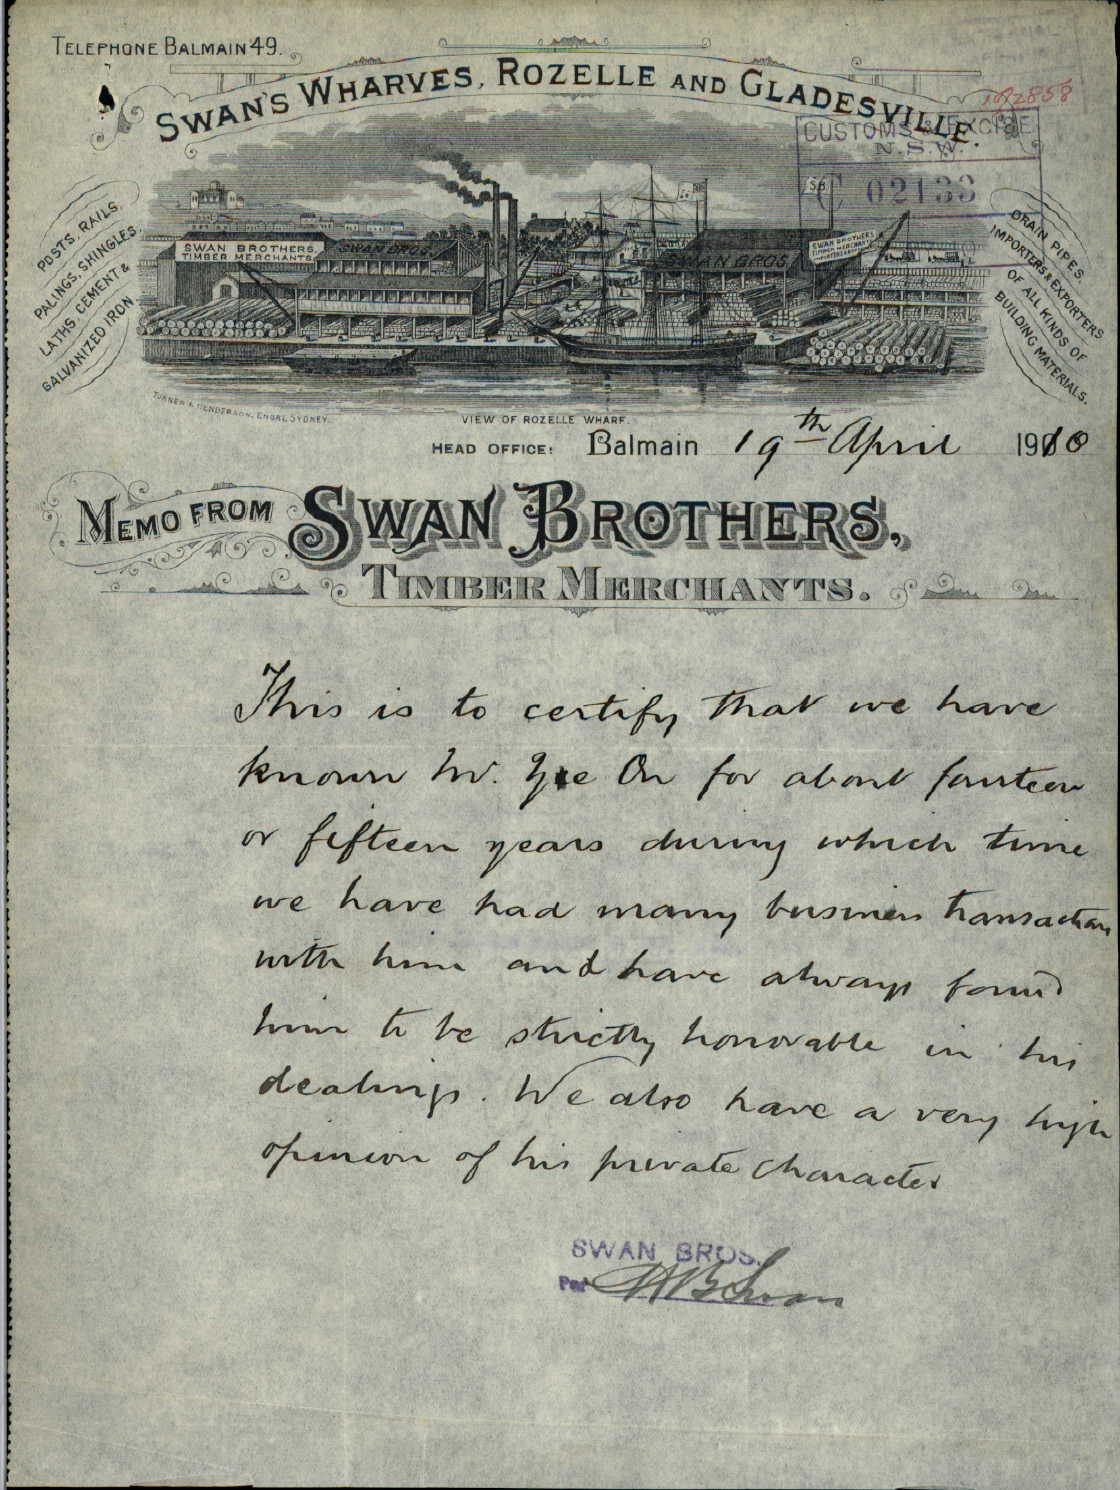 TELEPHONE BALMAIN 49.
SWAN'S WHARVES, ROZELLE AND GLADESVILLE.
CUSTOMS & EXCISE
N.S.W.
C 02133
POSTS, RAILS,
PALINGS, SHINGLES,
LATHS, CEMENT &
GALVANIZED IRON
SWAN BROTHERS,
TIMBER MERCHANTS
SWAN BROS.
SWAN BROS.
SWAN BROTHERS
TIMBER MERCHANTS
DRAIN PIPES.
IMPORTERS & EXPORTERS
OF ALL KINDS OF
BUILDING MATERIALS.
TURNER & HENDERSON, ENGRS, SYDNEY.
VIEW OF ROZELLE WHARF.
HEAD OFFICE: Balmain 19th April 1910
MEMO FROM SWAN BROTHERS,
TIMBER MERCHANTS.
This is to certify that we have
known Mr. Yee On for about fourteen
or fifteen years during which time
we have had many business transactions
with him and have always found
him to be strictly honorable in his
dealings. We also have a very high
opinion of his private character
SWAN BROS.
Per Swan